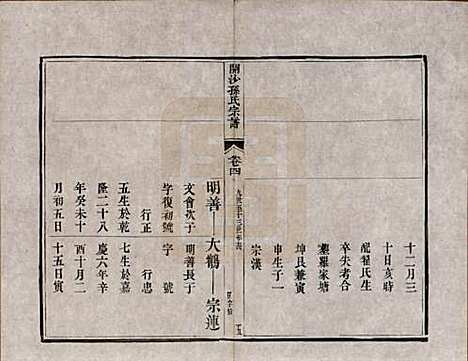 十二月三
十日亥時
卒失考合
配翟氏生
墓羅家塘
坤艮兼寅
申生子一
宗漢
開沙孫氏宗譜
卷四
明善 大鶴 宗蓮
文會次于 明善長于
字復初號 字 號
行正 行忠
五生於乾 七生於嘉
隆二十八 慶六年辛
年癸未十 酉十月二
月初五日 十五日寅